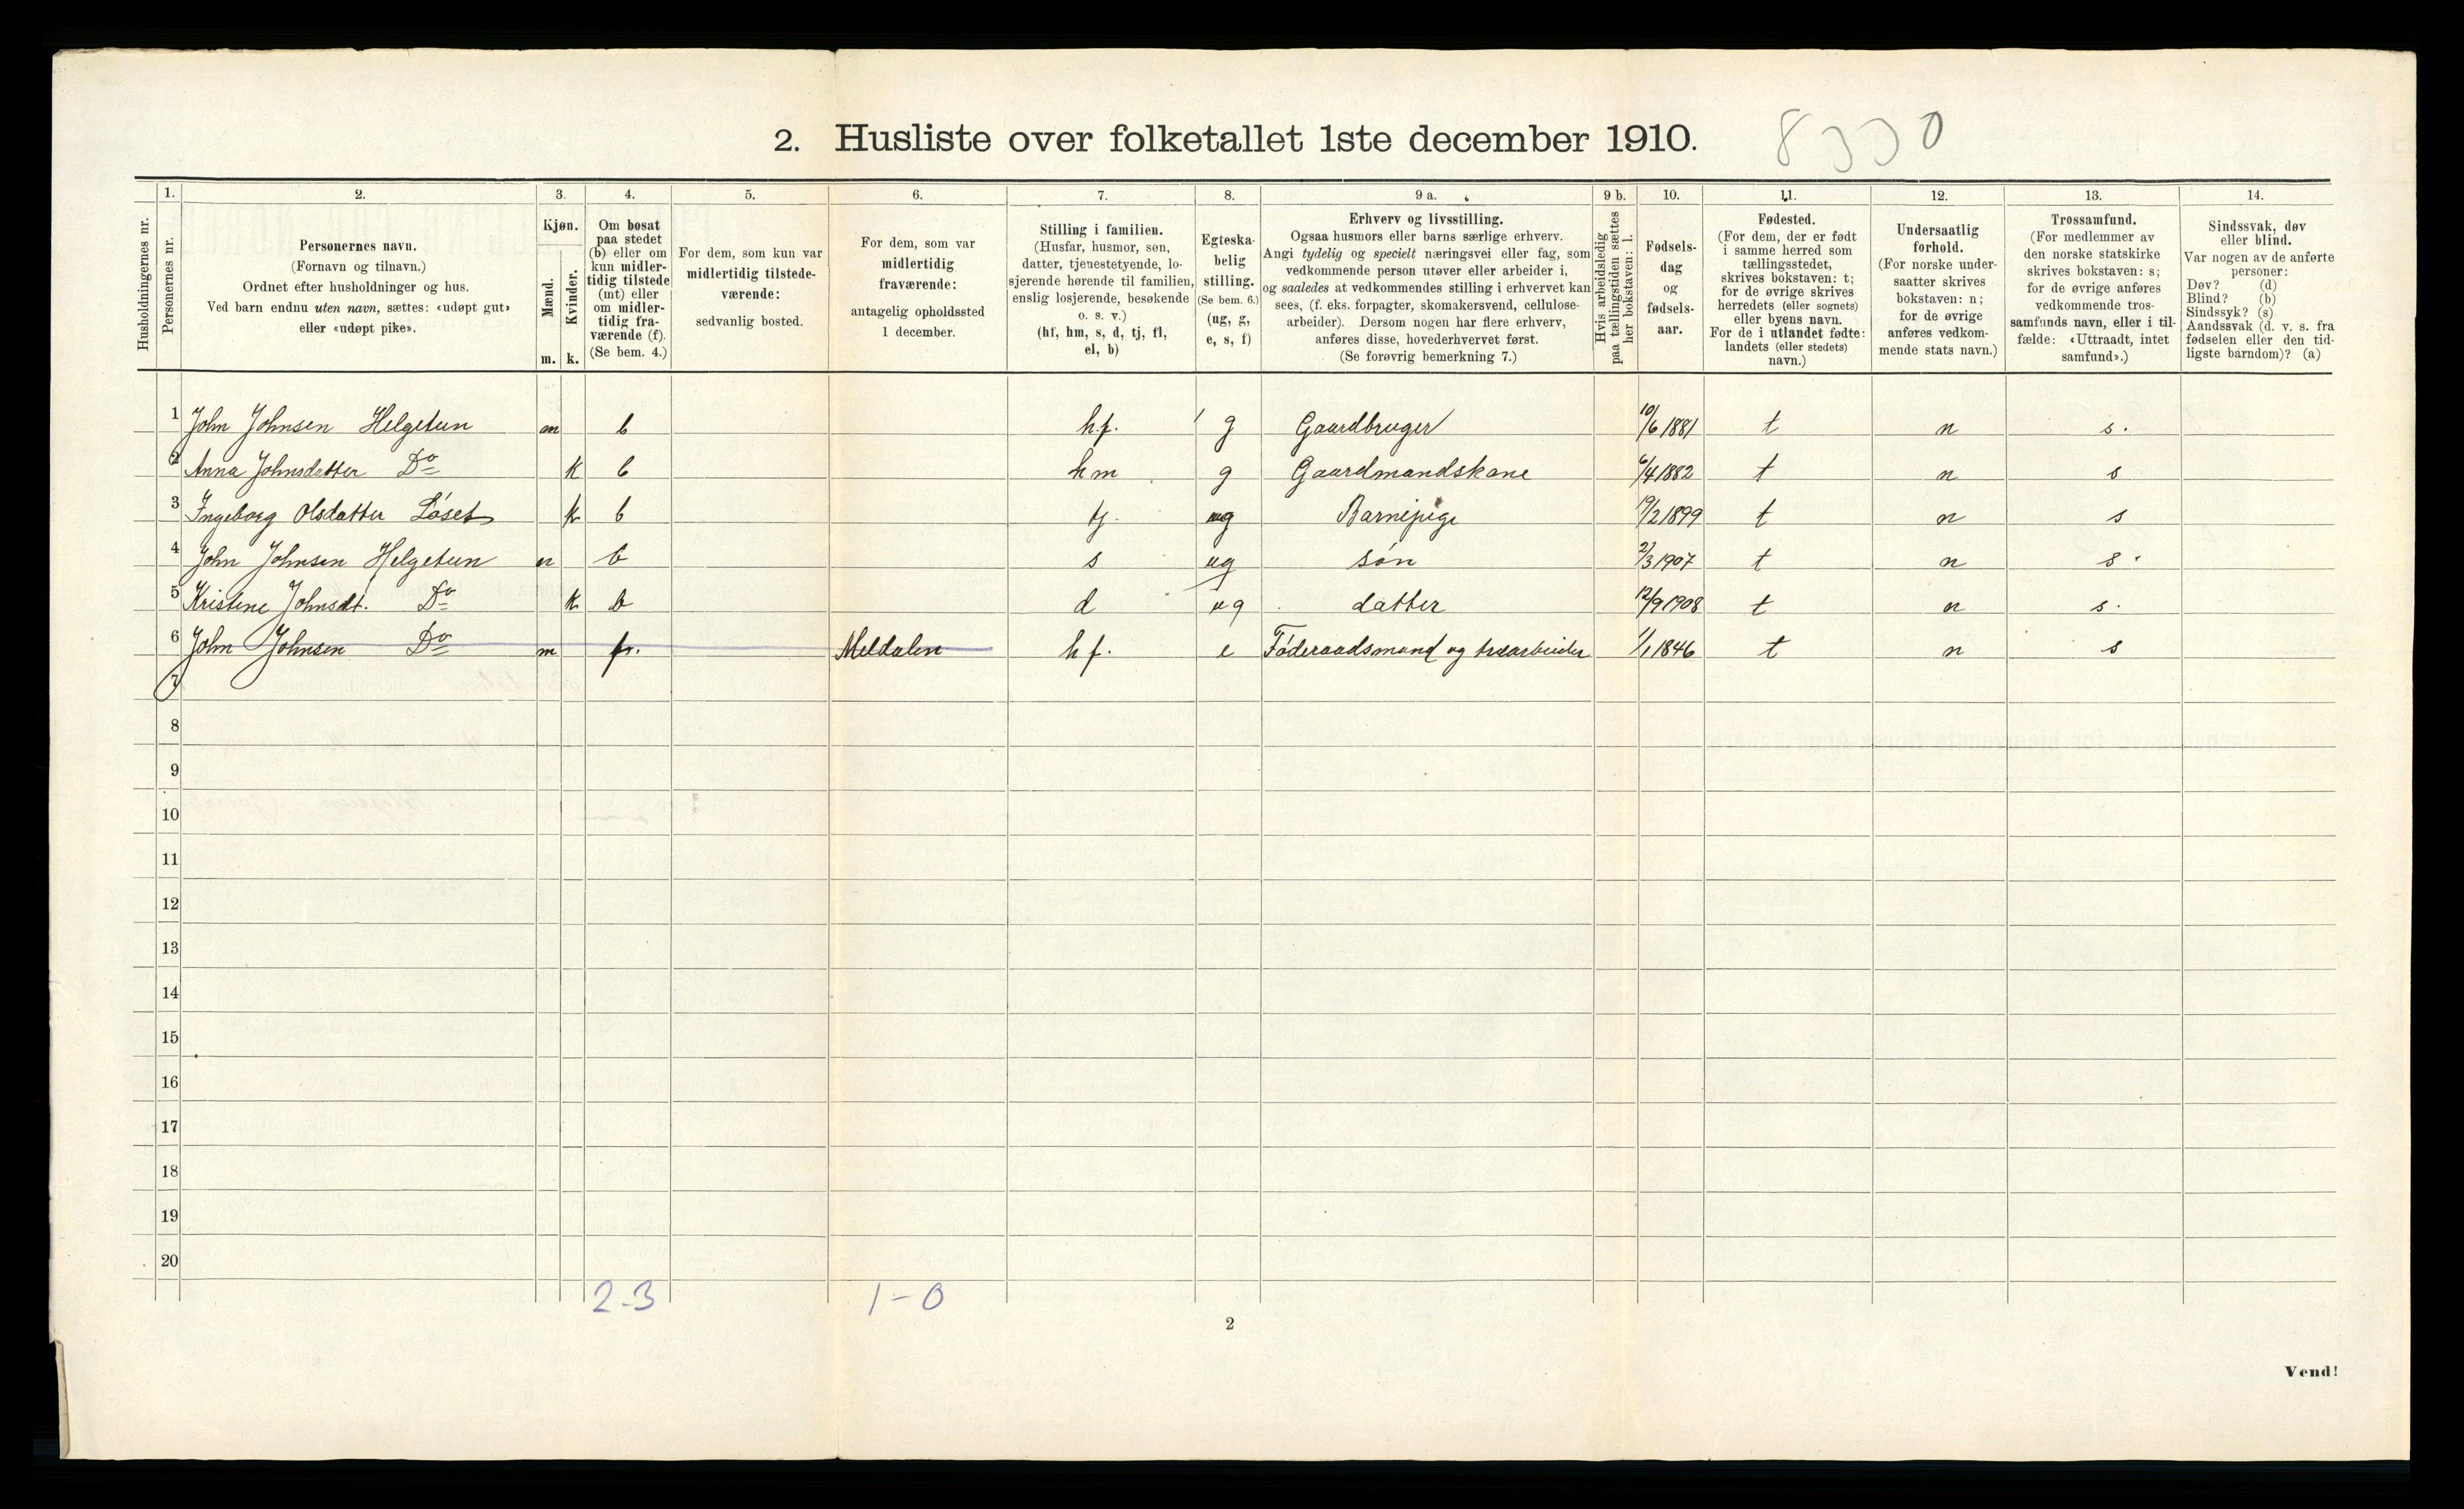 2. Husliste over folketallet 1ste december 1910. 8330
Husholdningernes nr.
1.
Personernes nr.
2.
Personernes navn.
(Fornavn og tilnavn.)
Ordnet efter husholdninger og hus.
Ved barn endnu uten navn, sættes: «udøpt gut»
eller «udøpt pike».
3.
Kjøn.
Mænd.
m.
Kvinder.
k.
4.
Om bosat
paa stedet
(b) eller om
kun midler-
tidig tilstede
(mt) eller
om midler-
tidig fra-
værende (f).
(Se bem. 4.)
5.
For dem, som kun var
midlertidig tilstede-
værende:
sedvanlig bosted.
6.
For dem, som var
midlertidig
fraværende:
antagelig opholdssted
1 december.
7.
Stilling i familien.
(Husfar, husmor, søn,
datter, tjenestetyende, lo-
sjerende hørende til familien,
enslig losjerende, besøkende
o. s. v.)
(hf, hm, s, d, tj, fl,
el, b)
8.
Egteska-
belig
stilling.
(Se bem. 6.)
(ug, g,
e, s, f)
9 a.
Erhverv og livsstilling.
Ogsaa husmors eller barns særlige erhverv.
Angi tydelig og specielt næringsvei eller fag, som
vedkommende person utøver eller arbeider i,
og saaledes at vedkommendes stilling i erhvervet kan
sees, (f. eks. forpagter, skomakersvend, cellulose-
arbeider). Dersom nogen har flere erhverv,
anføres disse, hovederhvervet først.
(Se forøvrig bemerkning 7.)
9 b.
Hvis arbeidsledig
paa tællingstiden sættes
her bokstaven: l.
10.
Fødsels-
dag
og
fødsels-
aar.
11.
Fødested.
(For dem, der er født
i samme herred som
tællingsstedet,
skrives bokstaven: t;
for de øvrige skrives
herredets (eller sognets)
eller byens navn.
For de i utlandet fødte:
landets (eller stedets)
navn.)
12.
Undersaatlig
forhold.
(For norske under-
saatter skrives
bokstaven: n;
for de øvrige
anføres vedkom-
mende stats navn.)
13.
Trossamfund.
(For medlemmer av
den norske statskirke
skrives bokstaven: s;
for de øvrige anføres
vedkommende tros-
samfunds navn, eller i til-
fælde: «Uttraadt, intet
samfund».)
14.
Sindssvak, døv
eller blind.
Var nogen av de anførte
personer:
Døv? (d)
Blind? (b)
Sindssyk? (s)
Aandssvak (d. v. s. fra
fødselen eller den tid-
ligste barndom)? (a)
1 John Johnsen Helgetun m b h.f. g Gaardbruger 10/6 1881 t n s.
2 Anna Johnsdatter Do k b hm g Gaardmandskone 6/4 1882 t n s
3 Ingeborg Olsdatter Løset k b tj. ug Barnepige 19/2 1899 t n s
4 John Johnsen Helgetun m b s ug søn 2/3 1907 t n s.
5 Kristine Johnsdt. Do k b d ug datter 12/9 1908 t n s.
6 John Johnsen Do m fr. Meldalen hf. e Føderaadsmand og træarbeider 1/1 1846 t n s
7
8
9
10
11
12
13
14
15
16
17
18
19
20
2-3 1-0
2
Vend!